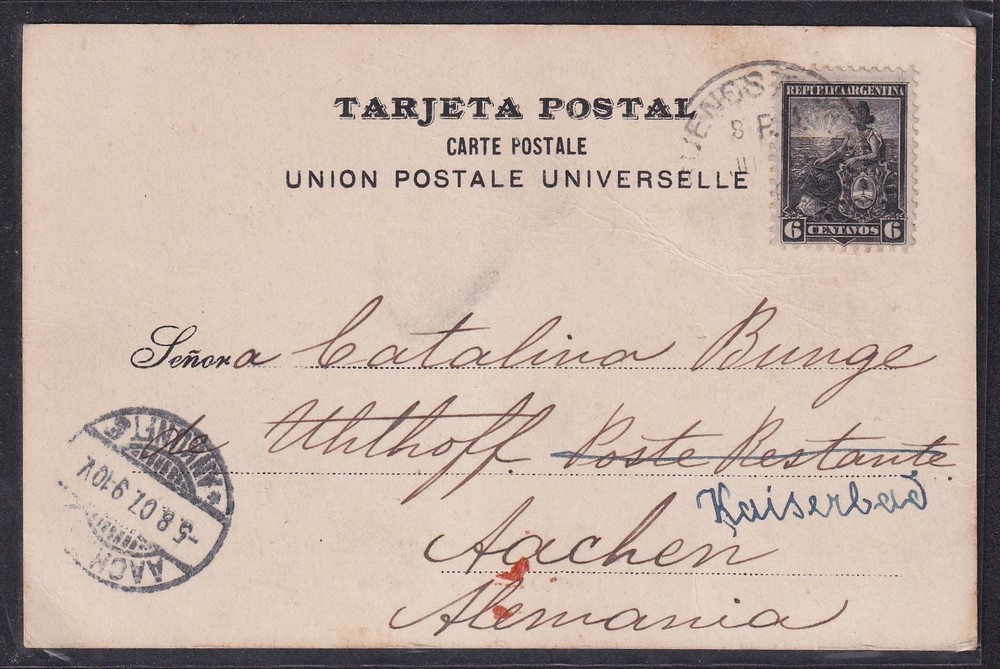 TARJETA POSTAL
CARTE POSTALE
UNION POSTALE UNIVERSELLE
REPUBLICA ARGENTINA
6 CENTAVOS 6
8 P
Señora Catalina Bunge
de Uhthoff Poste Restante
Kaiserbad
Aachen
Alemania
ANKUNFT
-5.8.07. 9-10V.
AACH